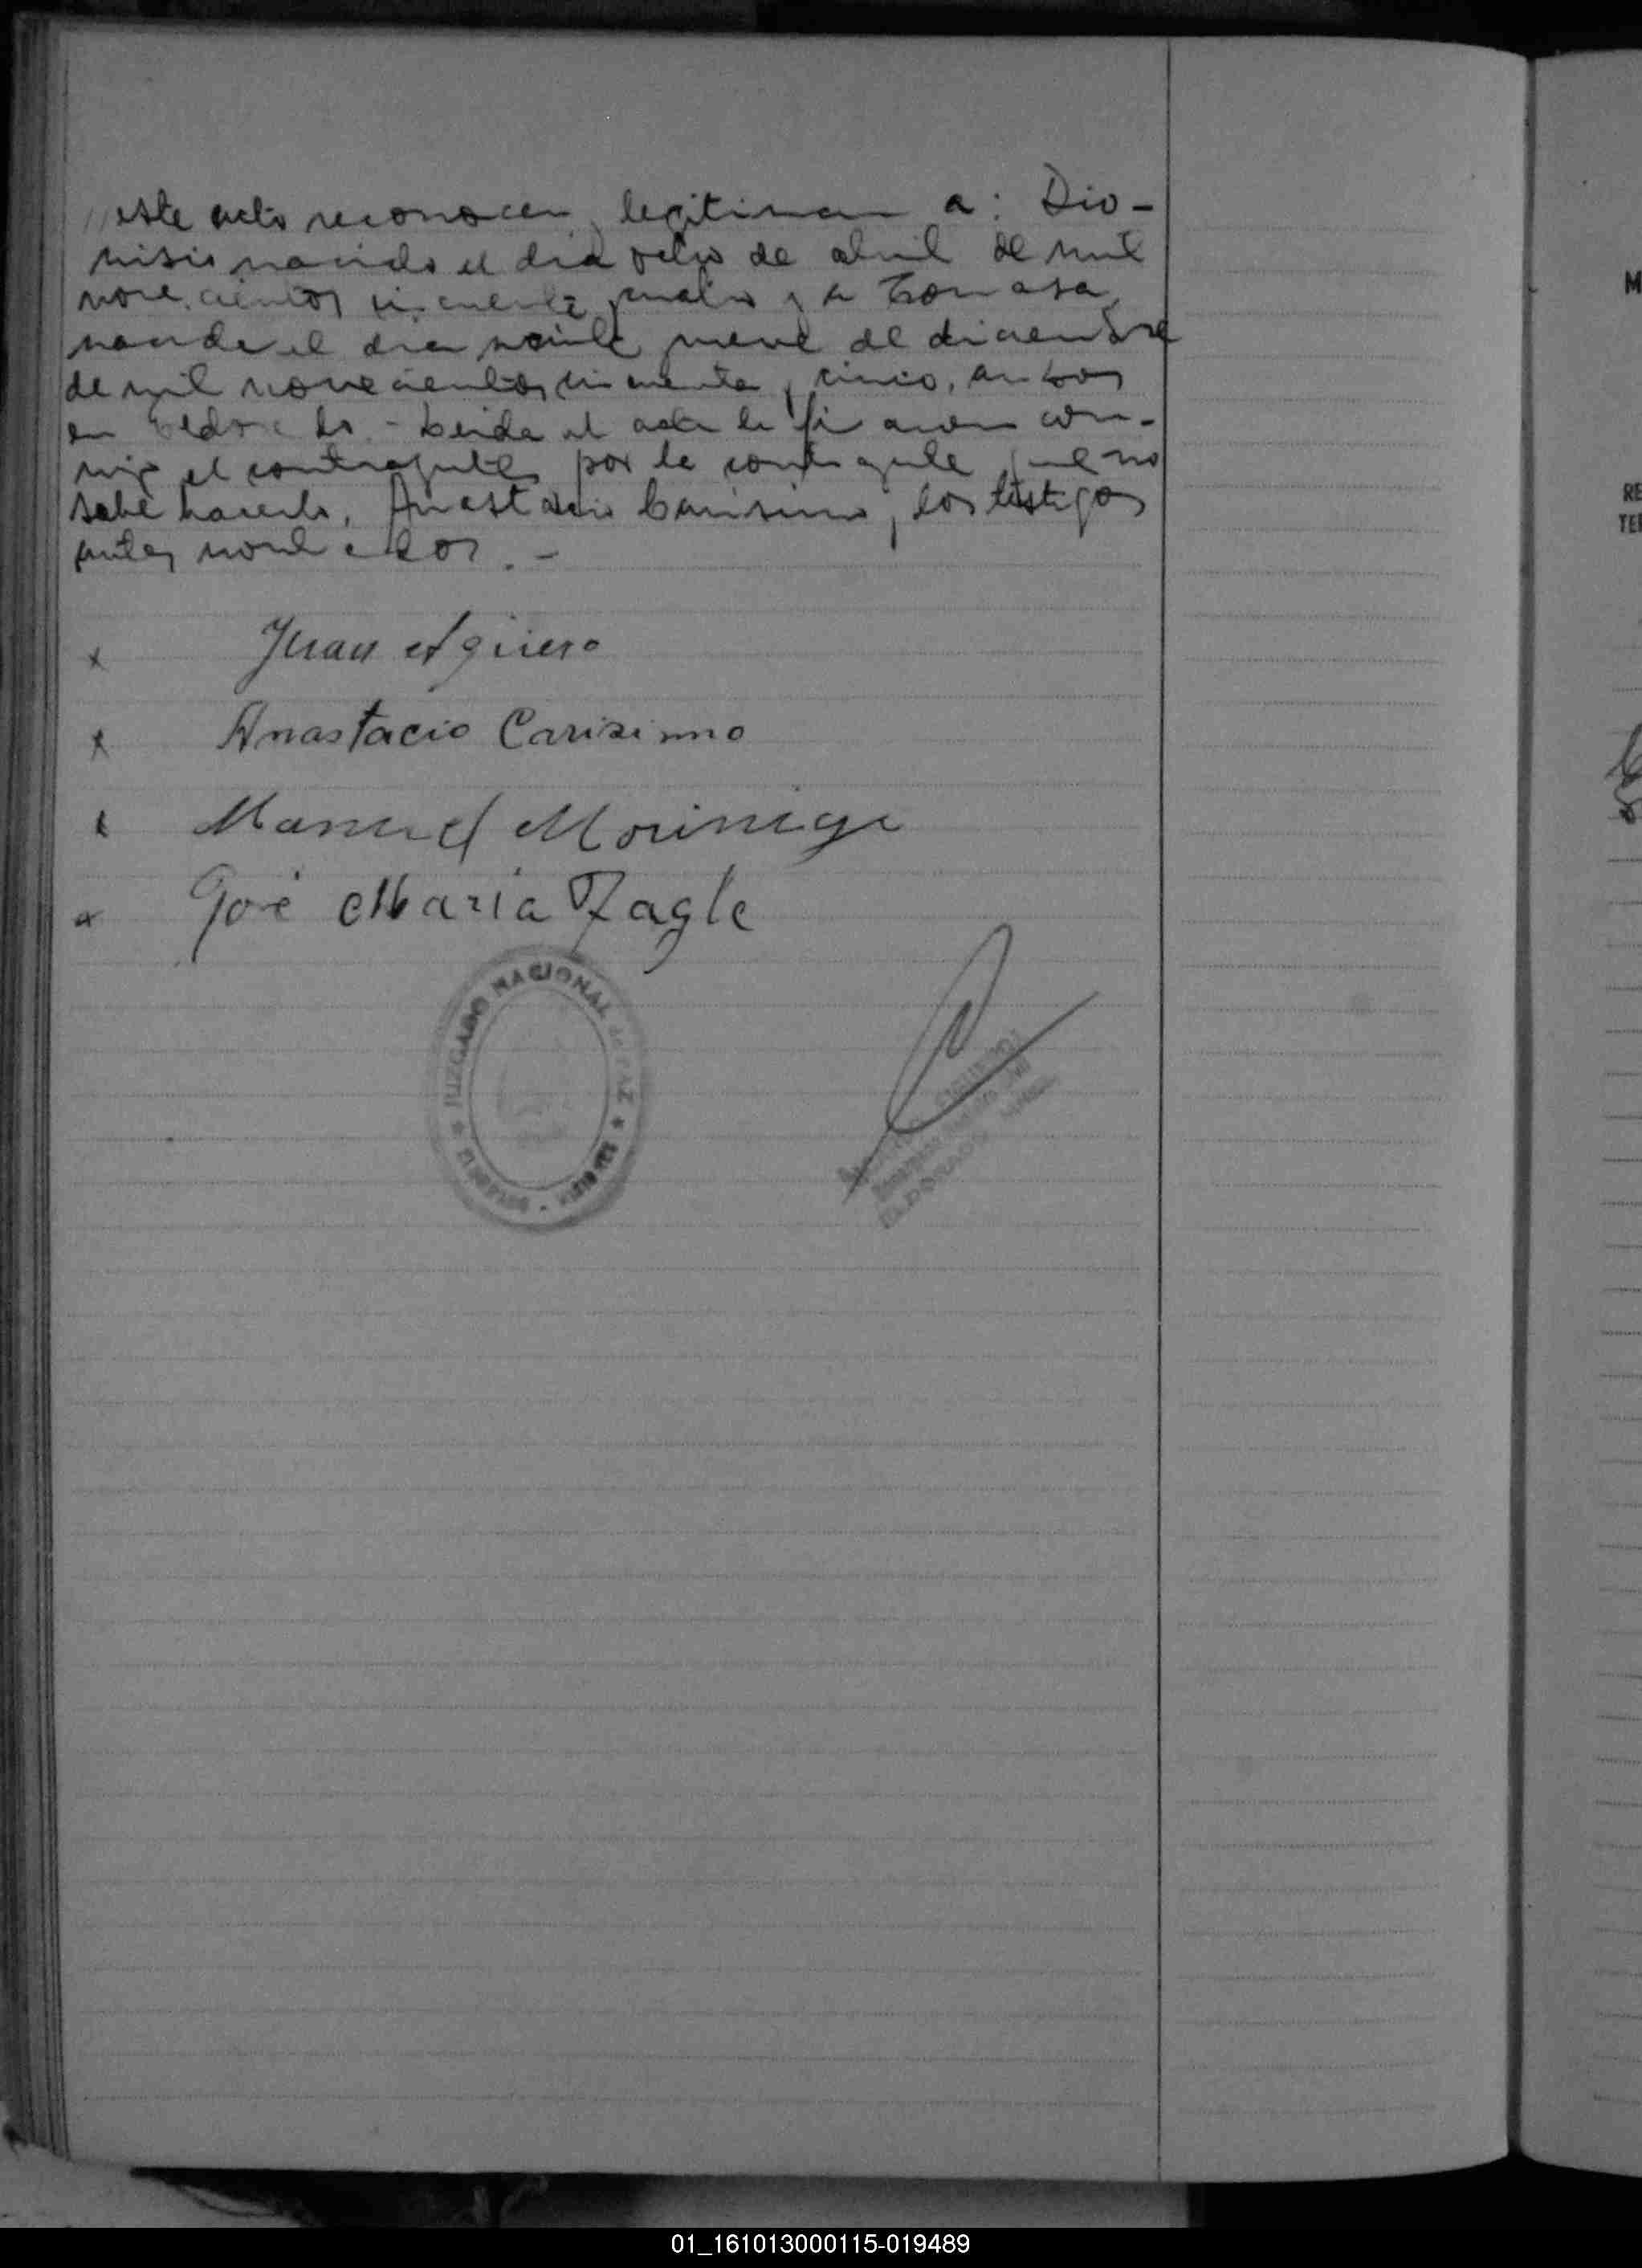 este acto reconocen y legitiman a: Dio-
nisio nacido el día ocho de abril de mil
novecientos cincuenta y cuatro y a Tomasa,
nacida el dia veinte y nueve de diciembre
de mil novecientos cincuenta y cinco, ambos
en Eldorado. - Leida el acta la firmaron con-
migo el contrayente, por la contrayente que no
sabe hacerlo, Anastacio Carisimo y los testigos
antes nombrados. -
x Juan Agüero
x Anastacio Carisimo
x Manuel Morinigo
x José Maria Tagle
JUZGADO NACIONAL de PAZ
ELDORADO - MISIONES
ELDORADO
M
RE
TE
01_161013000115-019489